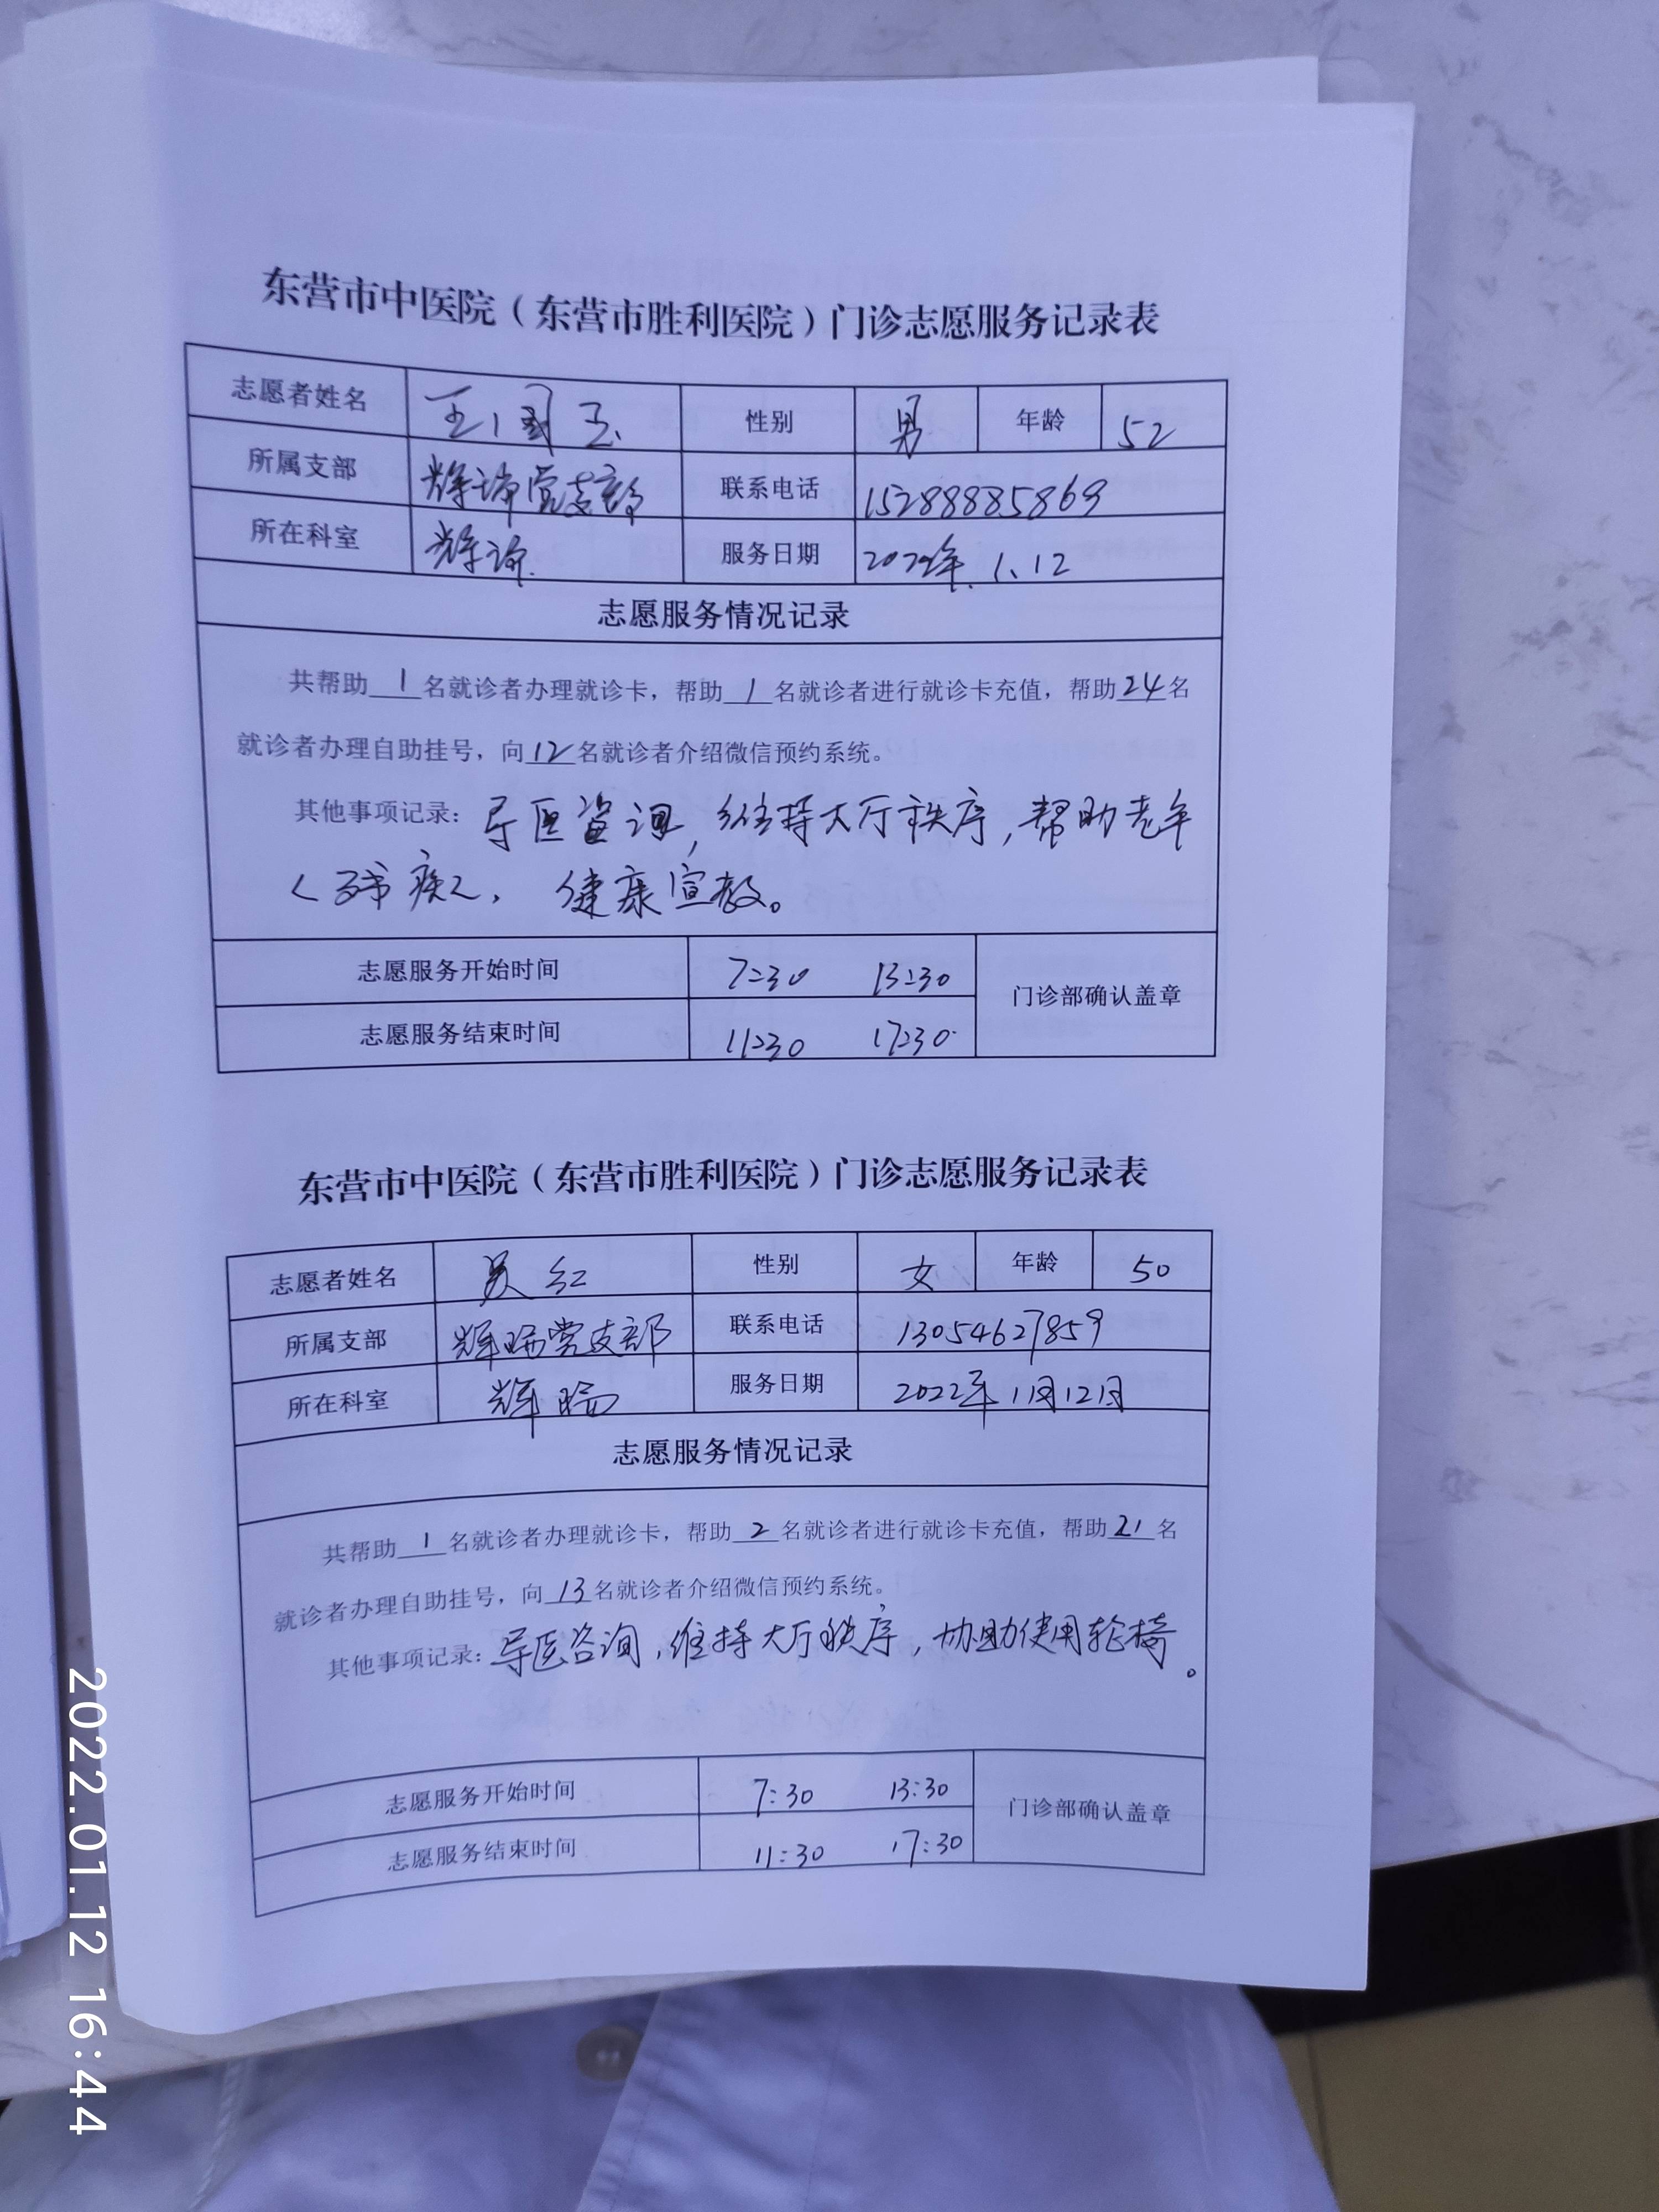 东营市中医院（东营市胜利医院）门诊志愿服务记录表
志愿者姓名 王国玉 性别 男 年龄 52
所属支部 党支部 联系电话 15288885869
所在科室 服务日期 2022年.1.12
志愿服务情况记录
共帮助1名就诊者办理就诊卡，帮助1名就诊者进行就诊卡充值，帮助24名
就诊者办理自助挂号，向12名就诊者介绍微信预约系统。
其他事项记录：导医咨询，维持大厅秩序，帮助老年
残疾人，健康宣教。
志愿服务开始时间 7:30 13:30 门诊部确认盖章
志愿服务结束时间 11:30 17:30
东营市中医院（东营市胜利医院）门诊志愿服务记录表
志愿者姓名 吴红 性别 女 年龄 50
所属支部 党支部 联系电话 13054627859
所在科室 服务日期 2022年1月12日
志愿服务情况记录
共帮助1名就诊者办理就诊卡，帮助2名就诊者进行就诊卡充值，帮助21名
就诊者办理自助挂号，向13名就诊者介绍微信预约系统。
其他事项记录：导医咨询，维持大厅秩序，协助使用轮椅。
志愿服务开始时间 7:30 13:30 门诊部确认盖章
志愿服务结束时间 11:30 17:30
2022.01.12 16:44